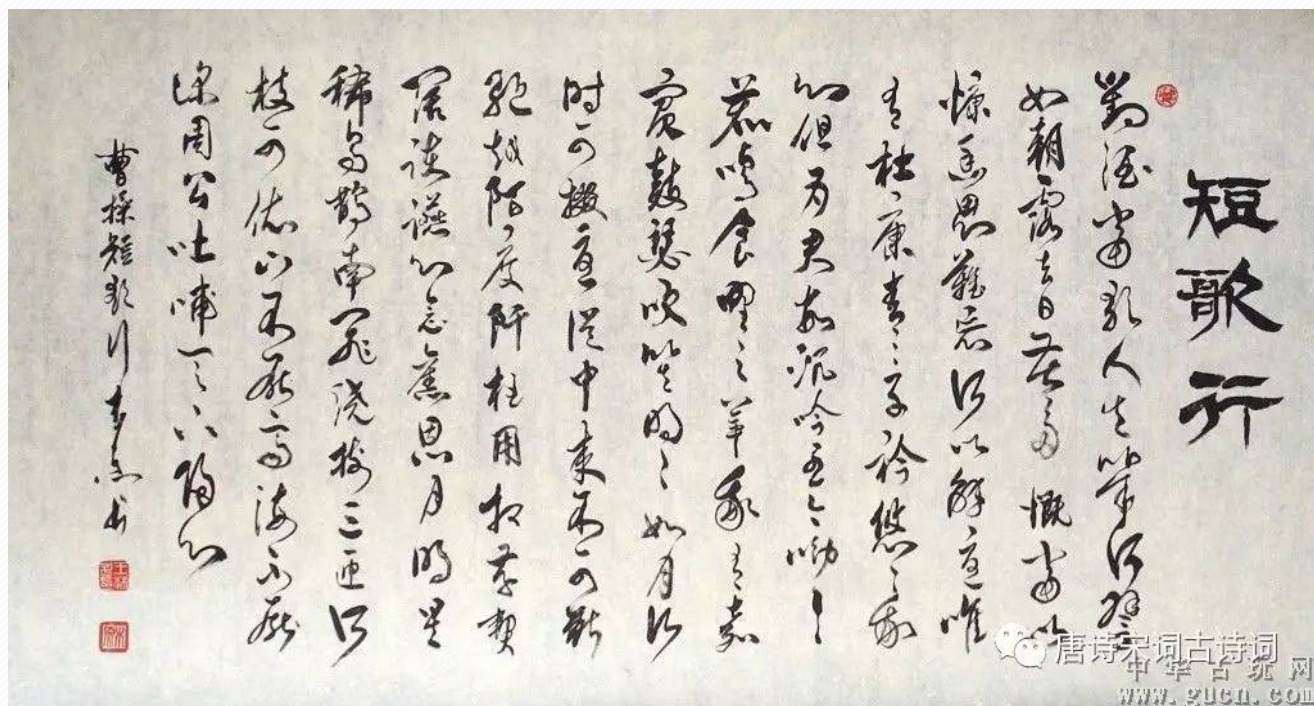 短歌行
對酒當歌人生幾何譬
如朝露去日苦多慨當以
慷憂思難忘何以解憂唯
有杜康青〻子衿悠〻我
心但为君故沉吟至今呦〻
鹿鳴食野之苹我有嘉
賓鼓瑟吹笙明〻如月何
时可掇憂從中來不可斷
絕越陌度阡枉用相存契
闊談讌心念舊恩月明星
稀烏鵲南飛遶樹三匝何
枝可依山不厭高海不厭
深周公吐哺天下歸心
曹操短歌行
唐诗宋词古诗词
中华古玩网
www.gucn.com